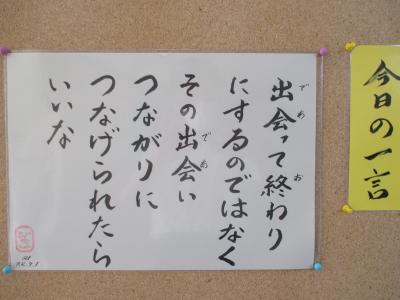 今日の一言
出会って終わり
にするのではなく
その出会い
つながりに
つなげられたら
いいな